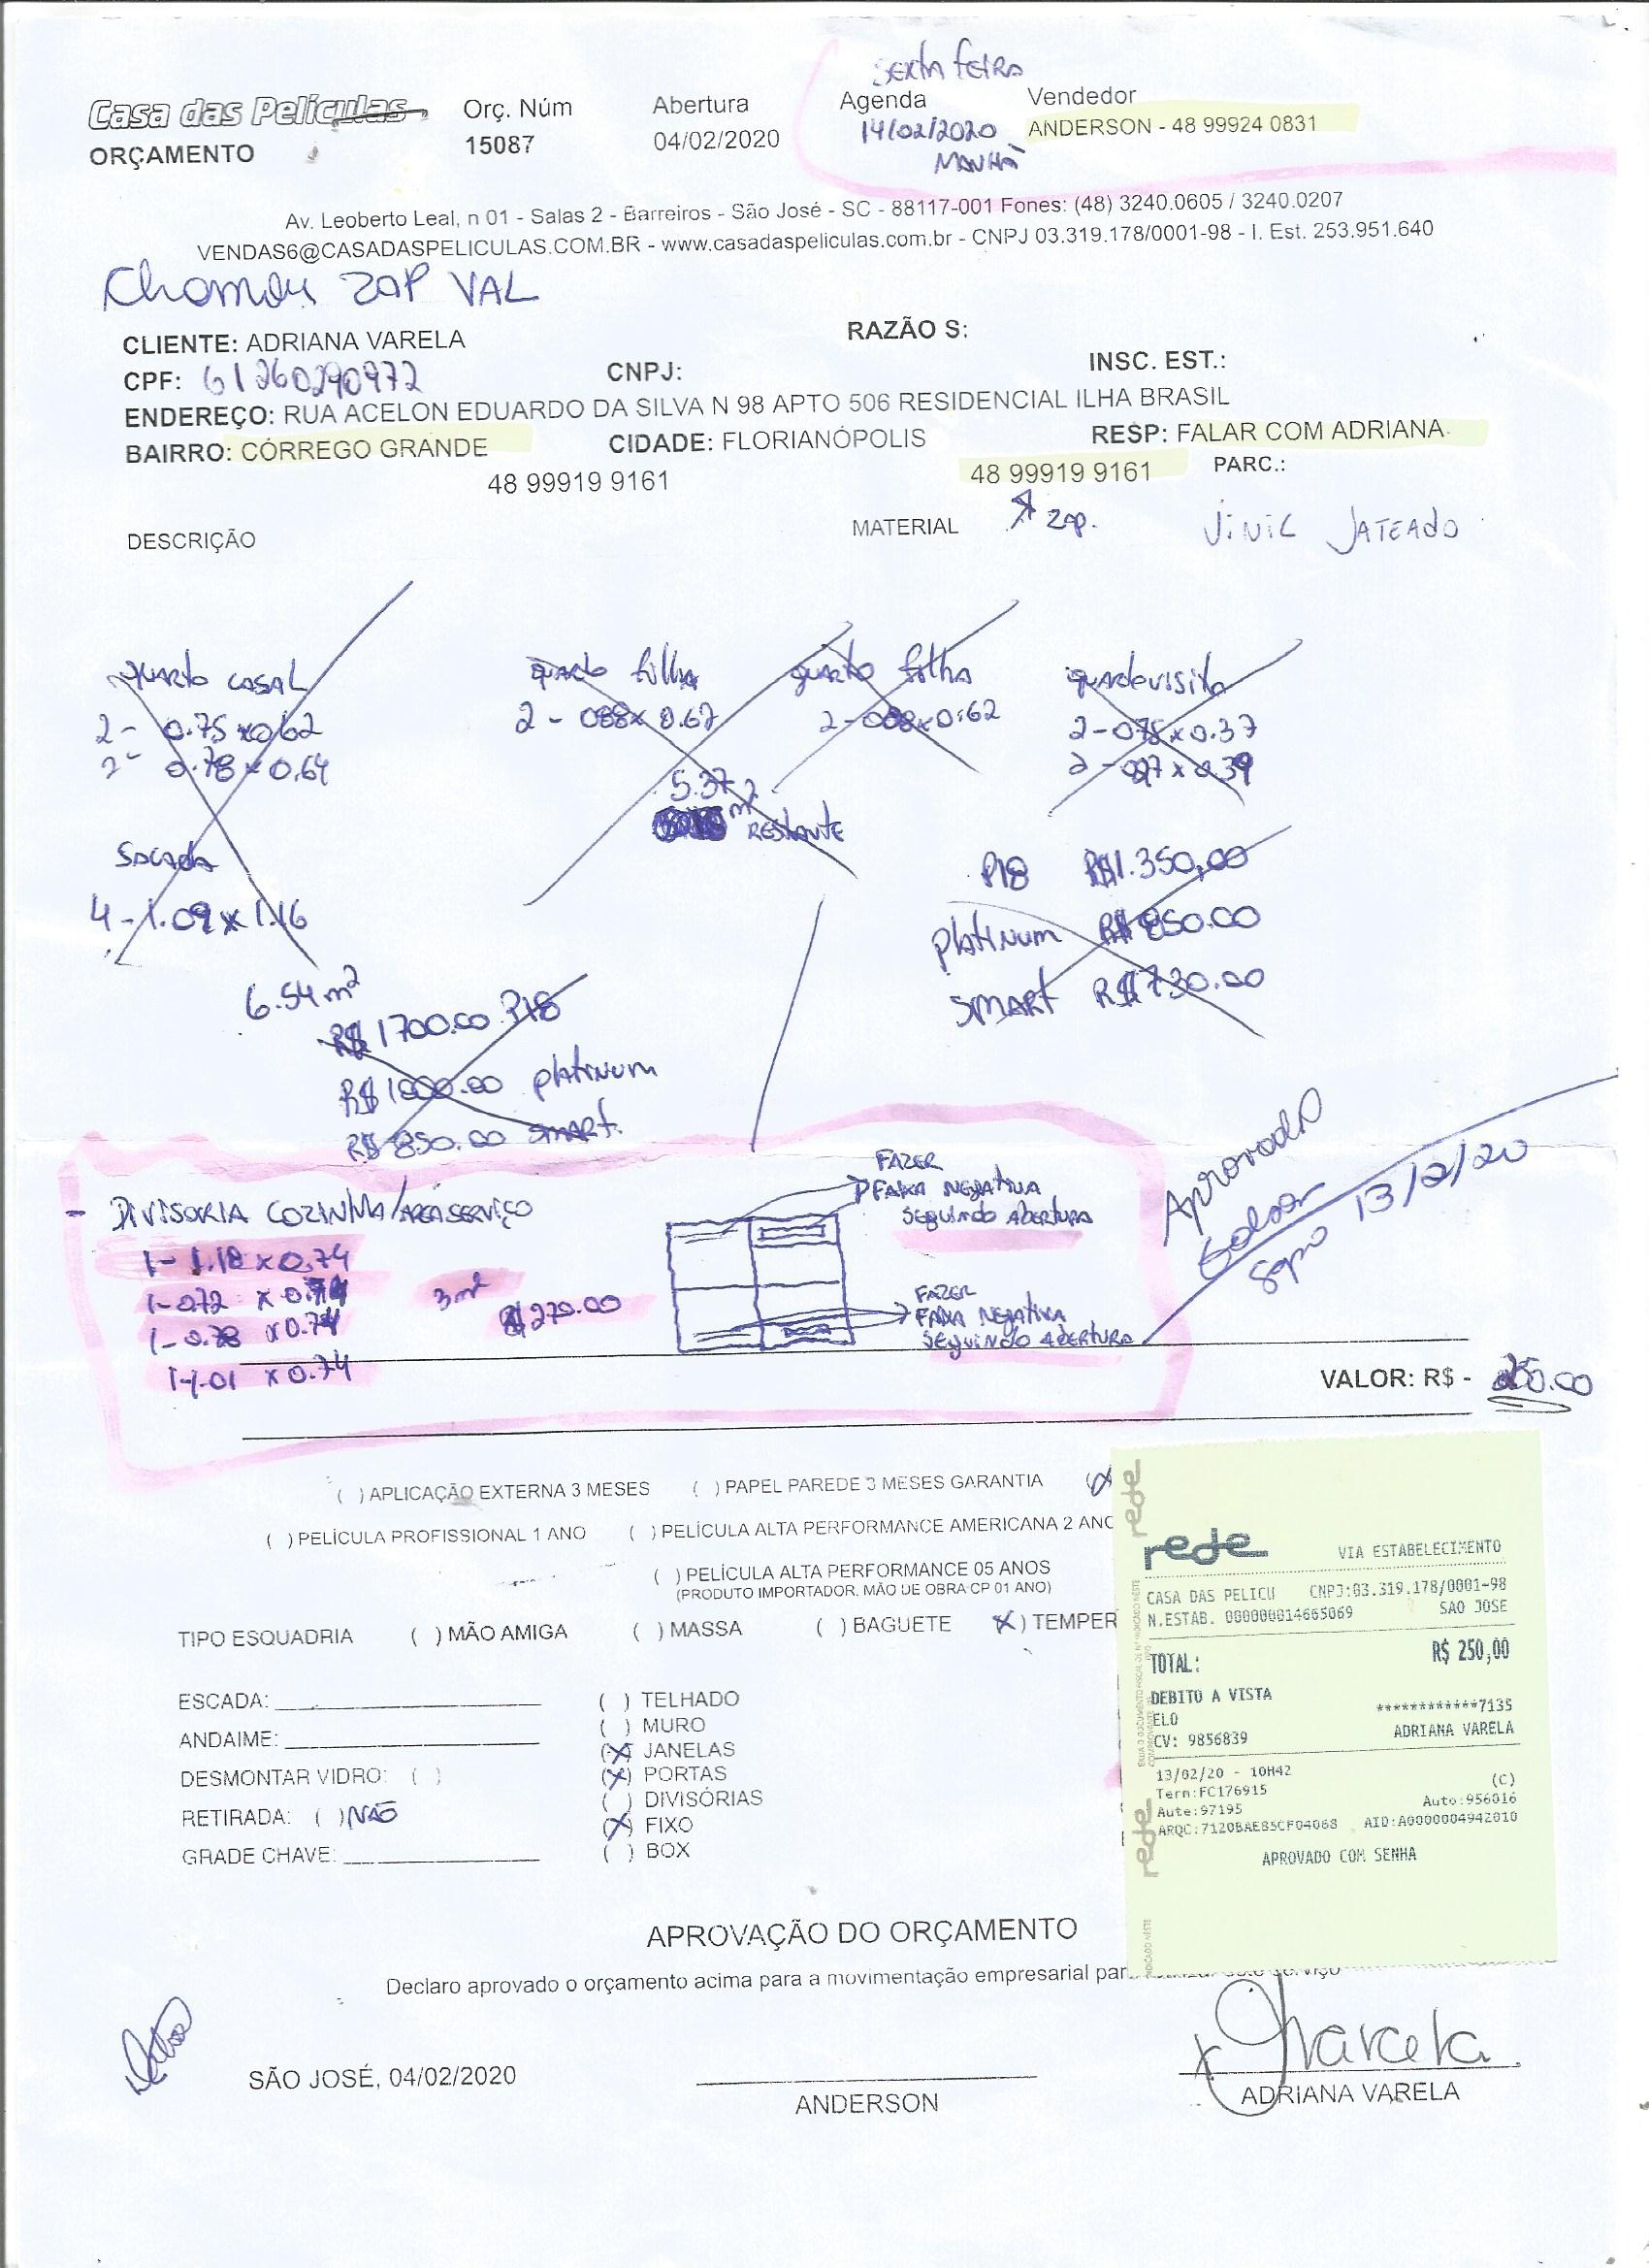 SEXTA FEIRA
Casa das Películas Orç. Núm Abertura Agenda Vendedor
ORÇAMENTO 15087 04/02/2020 14/02/2020 ANDERSON - 48 99924 0831
MANHÃ
Av. Leoberto Leal, n 01 - Salas 2 - Barreiros - São José - SC - 88117-001 Fones: (48) 3240.0605 / 3240.0207
VENDAS6@CASADASPELICULAS.COM.BR - www.casadaspeliculas.com.br - CNPJ 03.319.178/0001-98 - I. Est. 253.951.640
ZAP VAL
CLIENTE: ADRIANA VARELA RAZÃO S:
CPF: 61260290972 CNPJ: INSC. EST.:
ENDEREÇO: RUA ACELON EDUARDO DA SILVA N 98 APTO 506 RESIDENCIAL ILHA BRASIL
BAIRRO: CÓRREGO GRANDE CIDADE: FLORIANÓPOLIS RESP: FALAR COM ADRIANA
48 99919 9161 48 99919 9161 PARC.:
DESCRIÇÃO MATERIAL ZAP. ViNiL JATEADO
QUARTO CASAL quarto filha quarto filha
2 - 0.75 x 0,62 2 - 088 x 0.62 2 - 0.62 2 - 0.78 x 0.37
2 - 0.78 x 0,64 x 0.39
5.37 m²
RESTANTE
SACADA
4 - 1.09 x 1.16
P18 R$1.350,00
platinum R$850.00
SMART R$730.00
6.54 m²
R$1700.00 P18
R$1000.00 platinum
R$850.00 SMART.
- DIVISORIA COZINHA/AREA SERVIÇO
1 - 1.18 x 0.74
1 - 072 x 0.74
1 - 0.78 x 0.74
1 - 1.01 x 0.74
3 m²
R$270.00
FAZER
FAIXA NEGATIVA
SEGUINDO ABERTURA
FAZER
FAIXA NEGATIVA
SEGUINDO ABERTURA
Aprovado
13/2/20
VALOR: R$ - 250.00
( ) APLICAÇÃO EXTERNA 3 MESES ( ) PAPEL PAREDE 3 MESES GARANTIA (X
( ) PELÍCULA PROFISSIONAL 1 ANO ( ) PELÍCULA ALTA PERFORMANCE AMERICANA 2 ANO
( ) PELÍCULA ALTA PERFORMANCE 05 ANOS
(PRODUTO IMPORTADOR, MÃO DE OBRA CP 01 ANO)
TIPO ESQUADRIA ( ) MÃO AMIGA ( ) MASSA ( ) BAGUETE (X) TEMPER
ESCADA: ( ) TELHADO
( ) MURO
ANDAIME: (X) JANELAS
DESMONTAR VIDRO: ( ) (X) PORTAS
( ) DIVISÓRIAS
RETIRADA: ( ) NÃO (X) FIXO
GRADE CHAVE: ( ) BOX
rede VIA ESTABELECIMENTO
CASA DAS PELICU CNPJ:03.319.178/0001-98
N.ESTAB. 000000014665069 SAO JOSE
TOTAL: R$ 250,00
DEBITO A VISTA ************7135
ELO ADRIANA VARELA
CV: 9856839
13/02/20 - 10H42 (C)
Term:FC176915 Auto:956016
Aute:97195
ARQC:7120BAE85CF04068 AID:A0000004942010
APROVADO COM SENHA
rede
rede
APROVAÇÃO DO ORÇAMENTO
Declaro aprovado o orçamento acima para a movimentação empresarial par
SÃO JOSÉ, 04/02/2020
ANDERSON
x Varela
ADRIANA VARELA